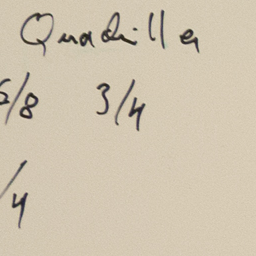 Quadrilla
6/8 3/4
/4